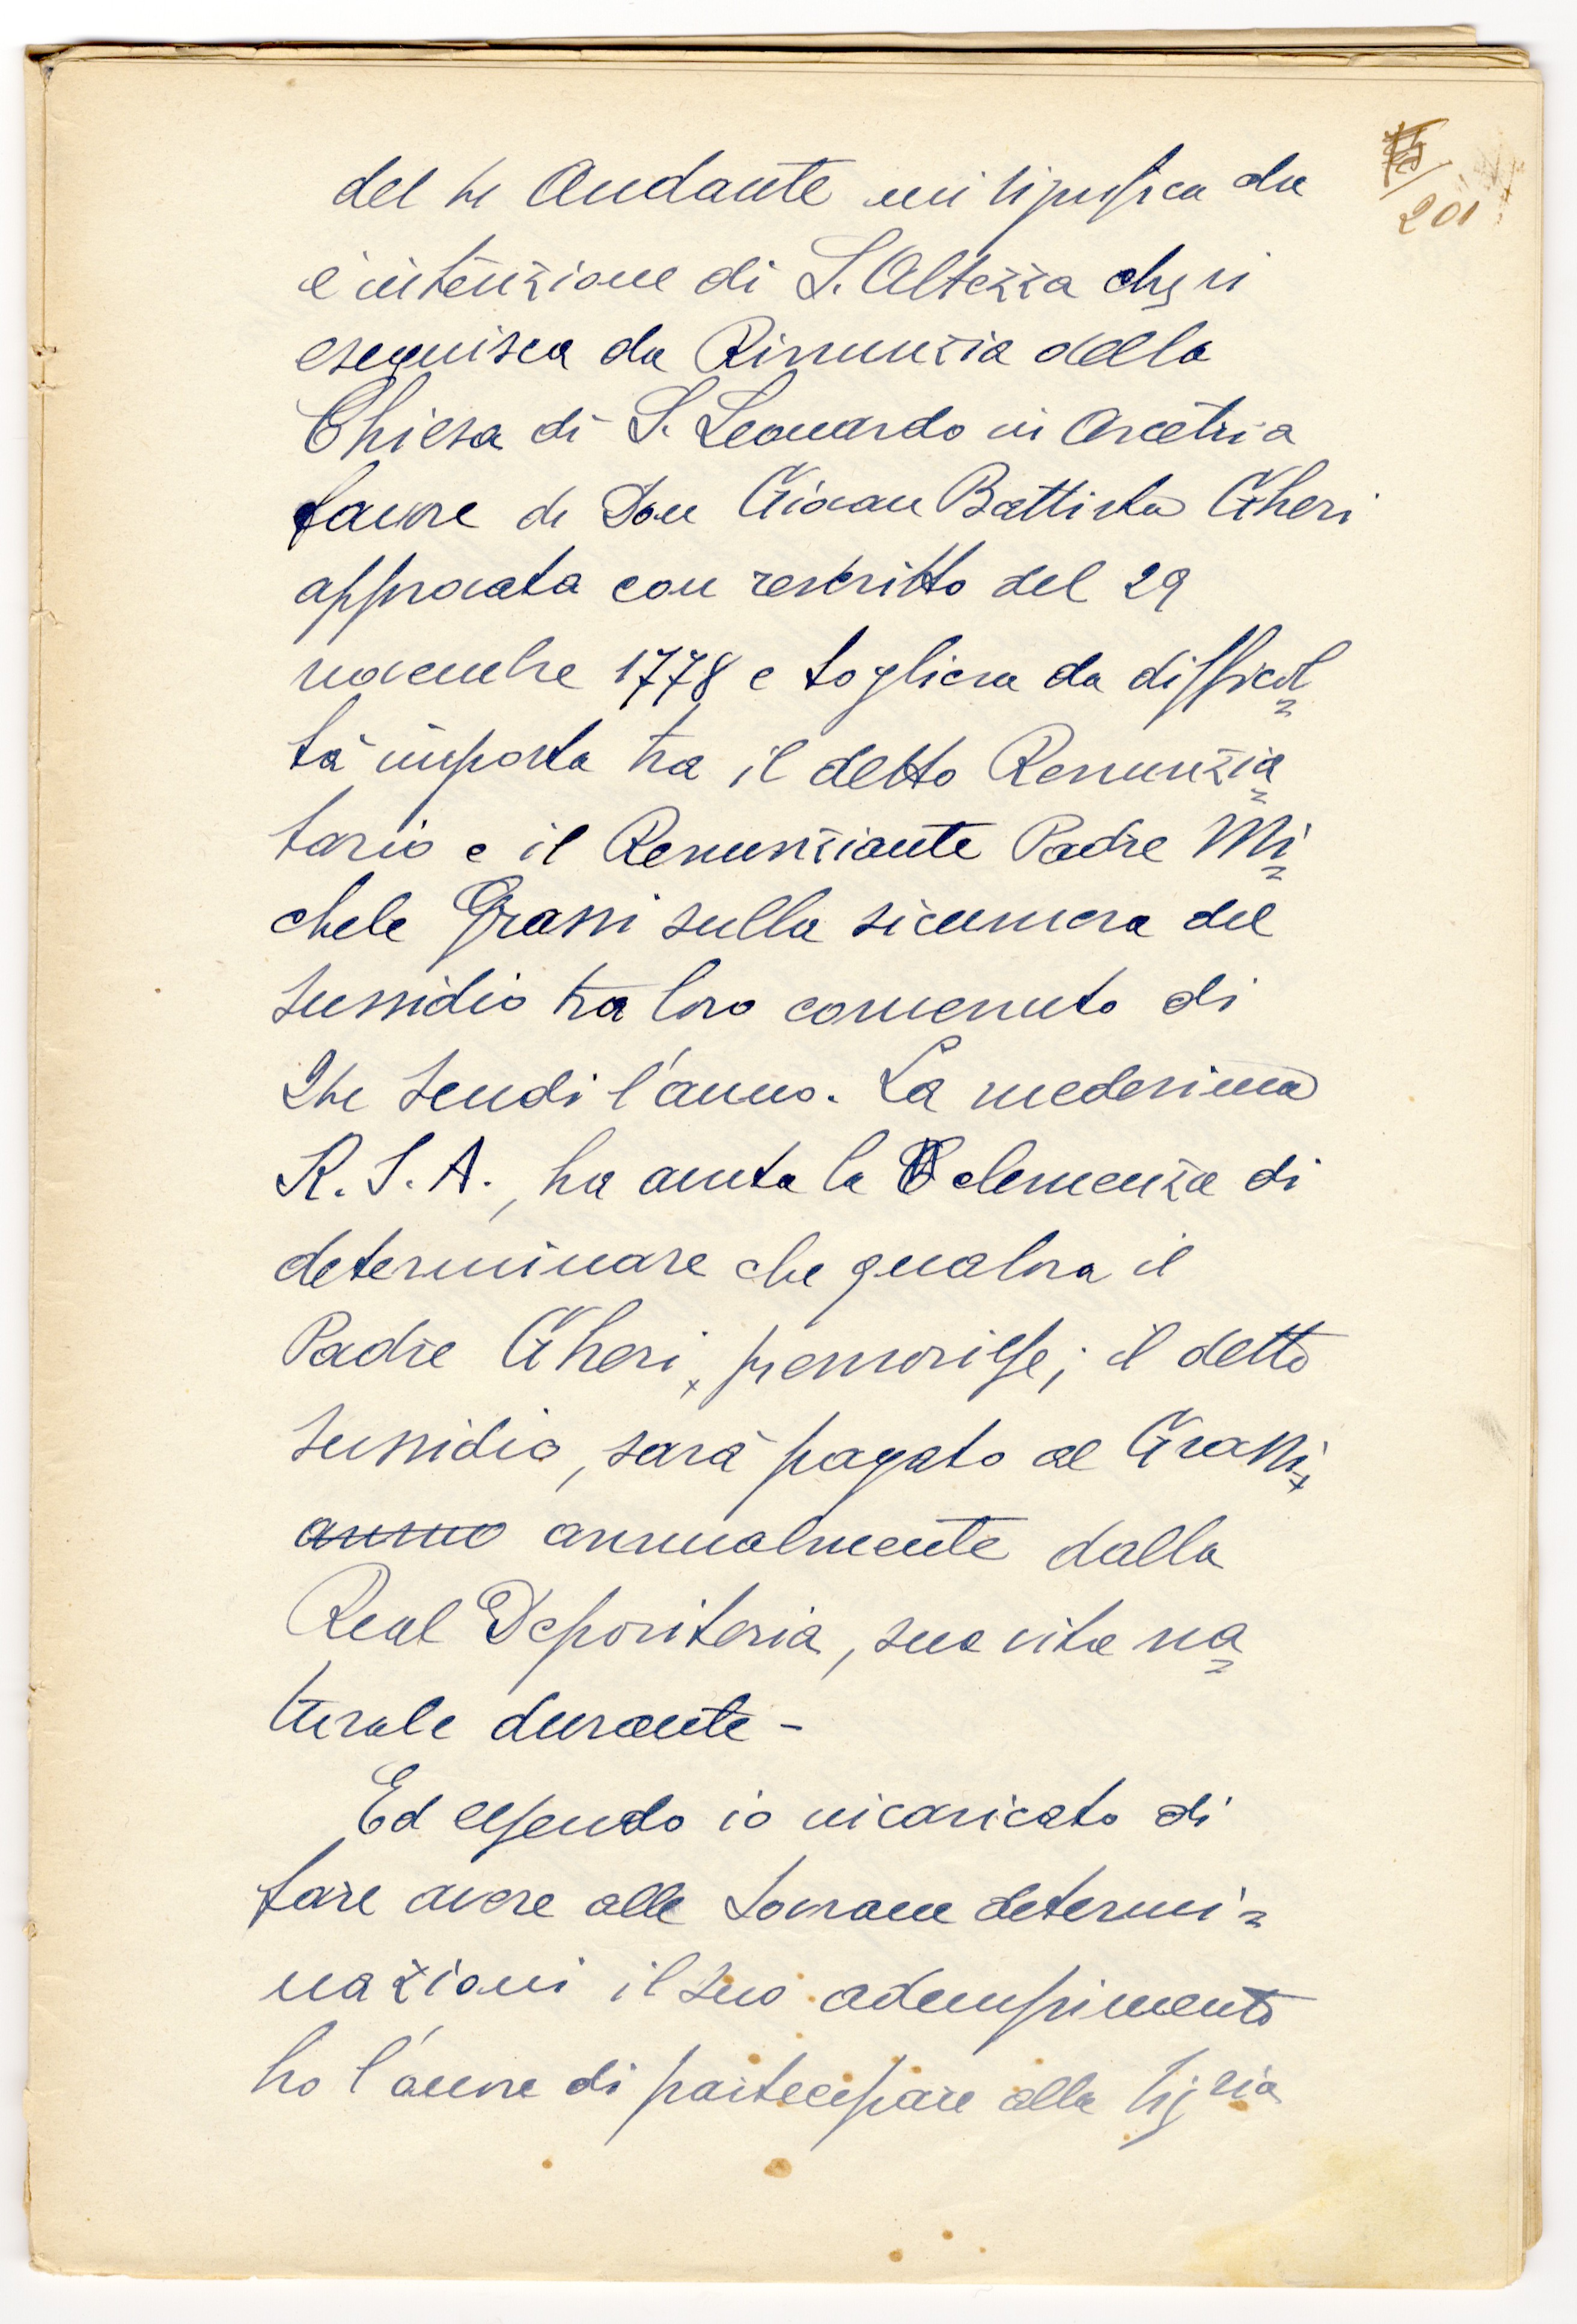 201
del 16 Andante mi significa che
è intenzione di S. Altezza che si
eseguisca la Rinunzia della
Chiesa di S. Leonardo in Arcetri a
favore di Don Giovan Battista Gheri
approvata con rescritto del 29
novembre 1778 e togliera la difficol
tà imposta tra il detto Renunzia
tario e il Renunziante Padre Mi
chele Grassi sulla sicurezza del
sussidio tra loro convenuto di
scudi l'anno. La medesima
R. S. A., ha avuta la clemenza di
determinare che qualora il
Padre Gheri, premorisse; il detto
sussidio, sarà pagato al Grassi,
anno annualmente dalla
Real Depositeria, sua vita na
turale durante -
Ed essendo io incaricato di
fare avere alle Sovrane determi=
nazioni il suo adempimento
ho l'onore di partecipare alla